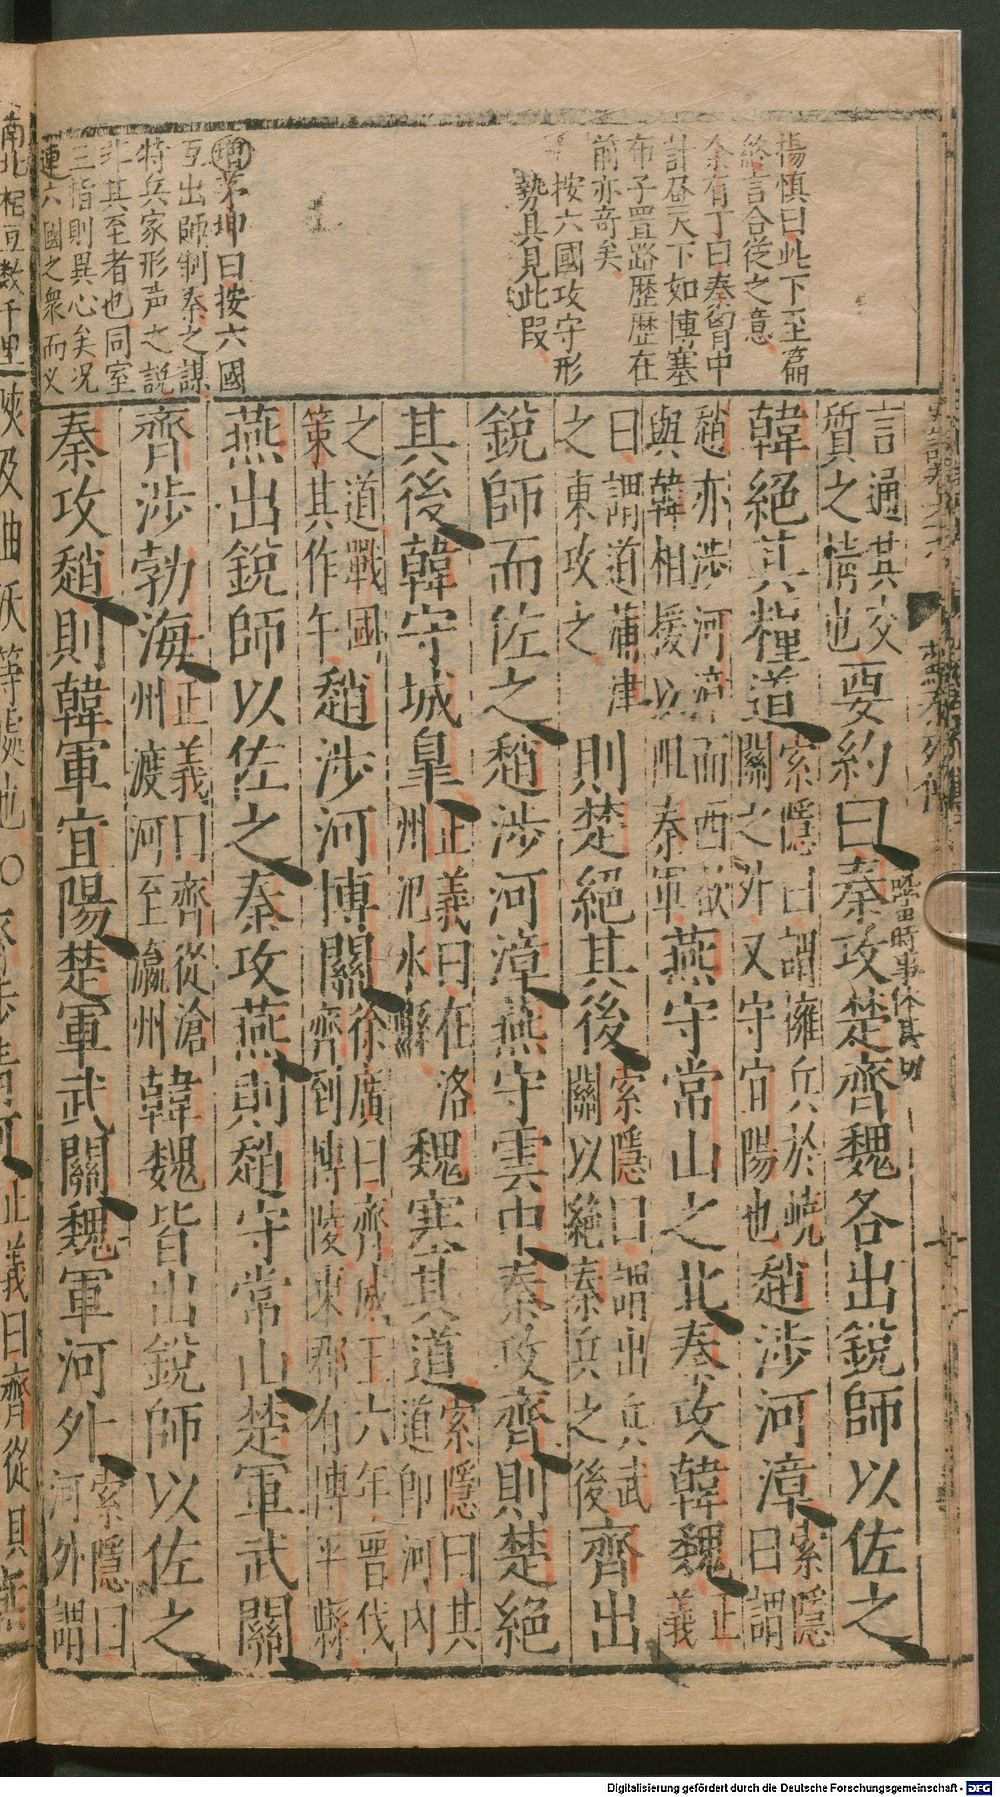 楊慎曰此下至篇
終言合從之意
余有丁曰秦胷中
計晝天下如博塞
布子置路歷歷在
前亦奇矣
按六國攻守形
勢具見此叚
增茅坤曰按六國
互出師制秦之謀
特兵家形声之説
非其至者也同室
三指則異心矣况
連六國之衆而乂
言通其交
質之情也
要約曰秦攻楚齊魏各出銳師以佐之
韓絕其糧道
索隱曰謂擁兵於嶢
關之外又守宜陽也
趙涉河漳
索隱
曰謂
趙亦涉河漳而西欲
與韓相援以阻秦軍
燕守常山之北秦攻韓魏
正
義
曰謂道蒲津
之東攻之
則楚絕其後
索隱曰謂出兵武
關以絕秦兵之後
齊出
銳師而佐之趙涉河漳燕守雲中秦攻齊則楚絕
其後韓守城皐
正義曰在洛
州汜水縣
魏塞其道
索隱曰其
道卽河內
之道戰國
策其作午
趙涉河博關
徐廣曰齊威王六年晋伐
齊到博陵東郡有博平縣
燕出銳師以佐之秦攻燕則趙守常山楚軍武關
齊涉勃海
正義曰齊從滄
州渡河至瀛州
韓魏皆出銳師以佐之
秦攻趙則韓軍宜陽楚軍武關魏軍河外
索隱曰
河外謂
當時事体甚切
南北相亙数千里
陜及曲沃等處也〇
正義曰齊從貝
Digitalisierung gefördert durch die Deutsche Forschungsgemeinschaft - DFG